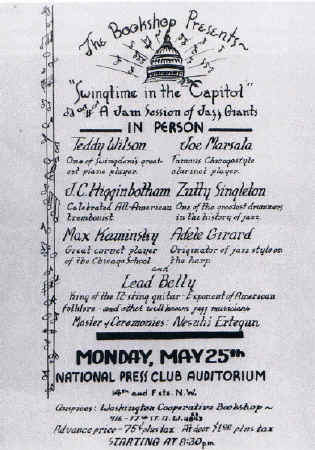 The Bookshop Presents~
"Swingtime in the Capitol"
A Jam Session of Jazz Giants
IN PERSON
Teddy Wilson
One of Swingdom's great-
est piano player.
Joe Marsala
Famous Chicagostyle
clarinet player.
J.C. Higginbotham
Celebrated All-American
trombonist
Zutty Singleton
One of the greatest drummers
in the history of jazz.
Max Kaminsky
Great cornet player
of the Chicago School
Adele Girard
Originator of jazz style on
the harp.
and
Lead Belly
King of the 12-sting guitar - Exponent of American
folklore - and other well known jazz musicians
Master of Ceremonies: Nesuhi Ertegun
MONDAY, MAY 25th
NATIONAL PRESS CLUB AUDITORIUM
14th and F sts. N.W.
Auspices: Washington Cooperative Bookshop~
Advance price - 75¢ plus tax At door $1.00 plus tax
STARTING AT 8:30pm